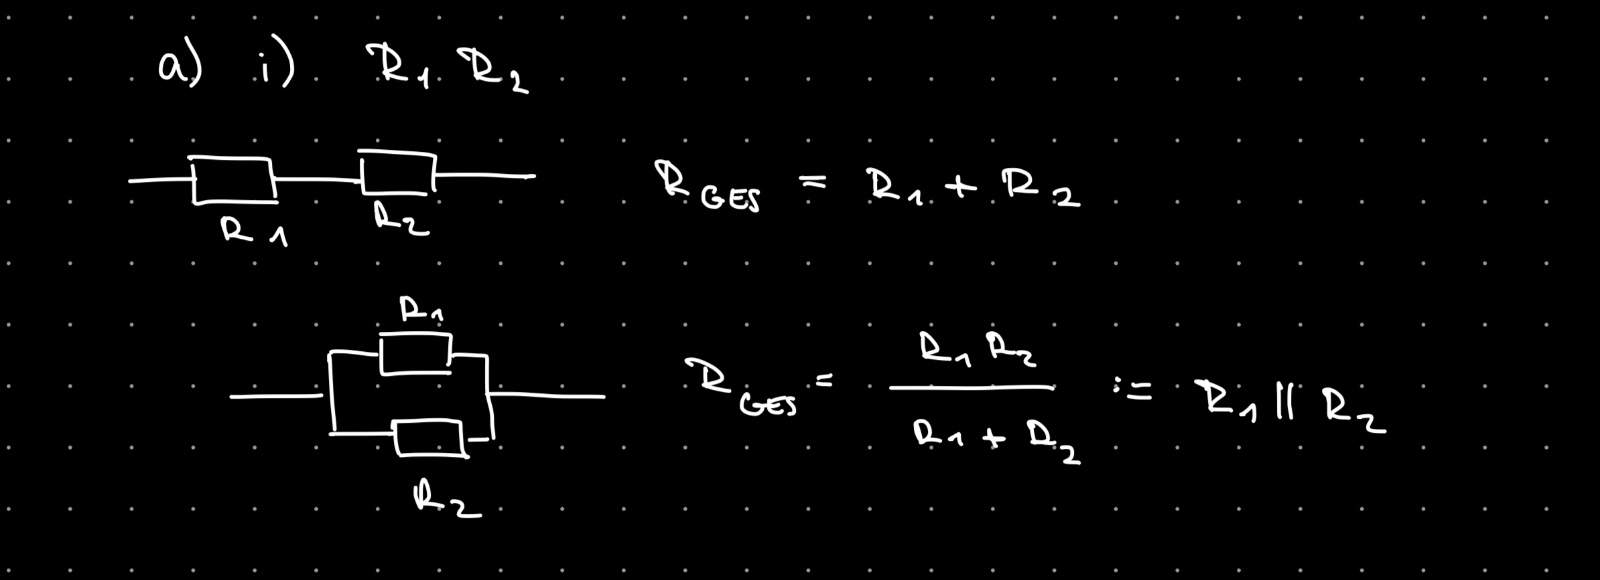 a) i) R₁ R₂
R₁ R₂
R_GES = R₁ + R₂
R₁
R_GES = (R₁ R₂) / (R₁ + R₂) := R₁ || R₂
R₂